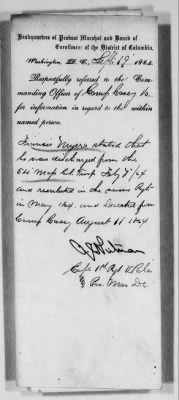 Headquarters of Provost Marshal and Board of
Enrollment of the District of Columbia,
Washington, D. C., 1864
Respectfully referred to the Com-
manding Officer of Camp Casey Va
for information in regard to the within
named person.
Francis Myers stated that
he was discharged from the
Feby 7/64
and reenlisted in the same Regt
in May 1864. and Deserted from
Camp Casey August 11 1864
Capt 1st Regt
Pro. Mar. D.C.